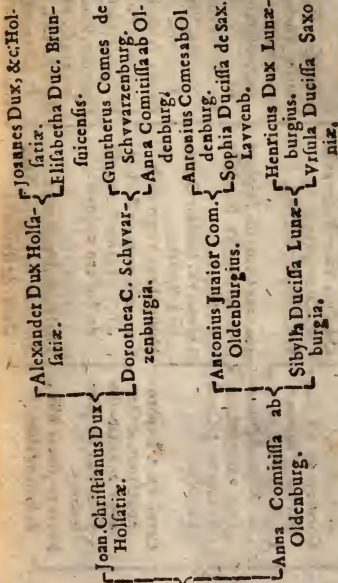 Joan.Chriſtianus Dux
Holſatiæ.
Anna Comitiſſa ab
Oldenburg.
Alexander Dux Holſa-
tiæ.
Dorothea C. Schvvar-
zenburgia.
Antonius Juaior Com.
Oldenburgius.
Sibylla Duciſſa Lunæ-
burgia.
Joannes Dux, &c; Hol-
ſatiæ.
Eliſabetha Duc. Brun-
ſuicenſis.
Guntherus Comes de
Schvvarzenburg.
Anna Comitiſſa ab Ol-
denburg.
Antonius Comes ab Ol
denburg.
Sophia Duciſſa de Sax.
Lavvenb.
Henricus Dux Lunæ-
burgius.
Vrſula Duciſſa Saxo
niæ,